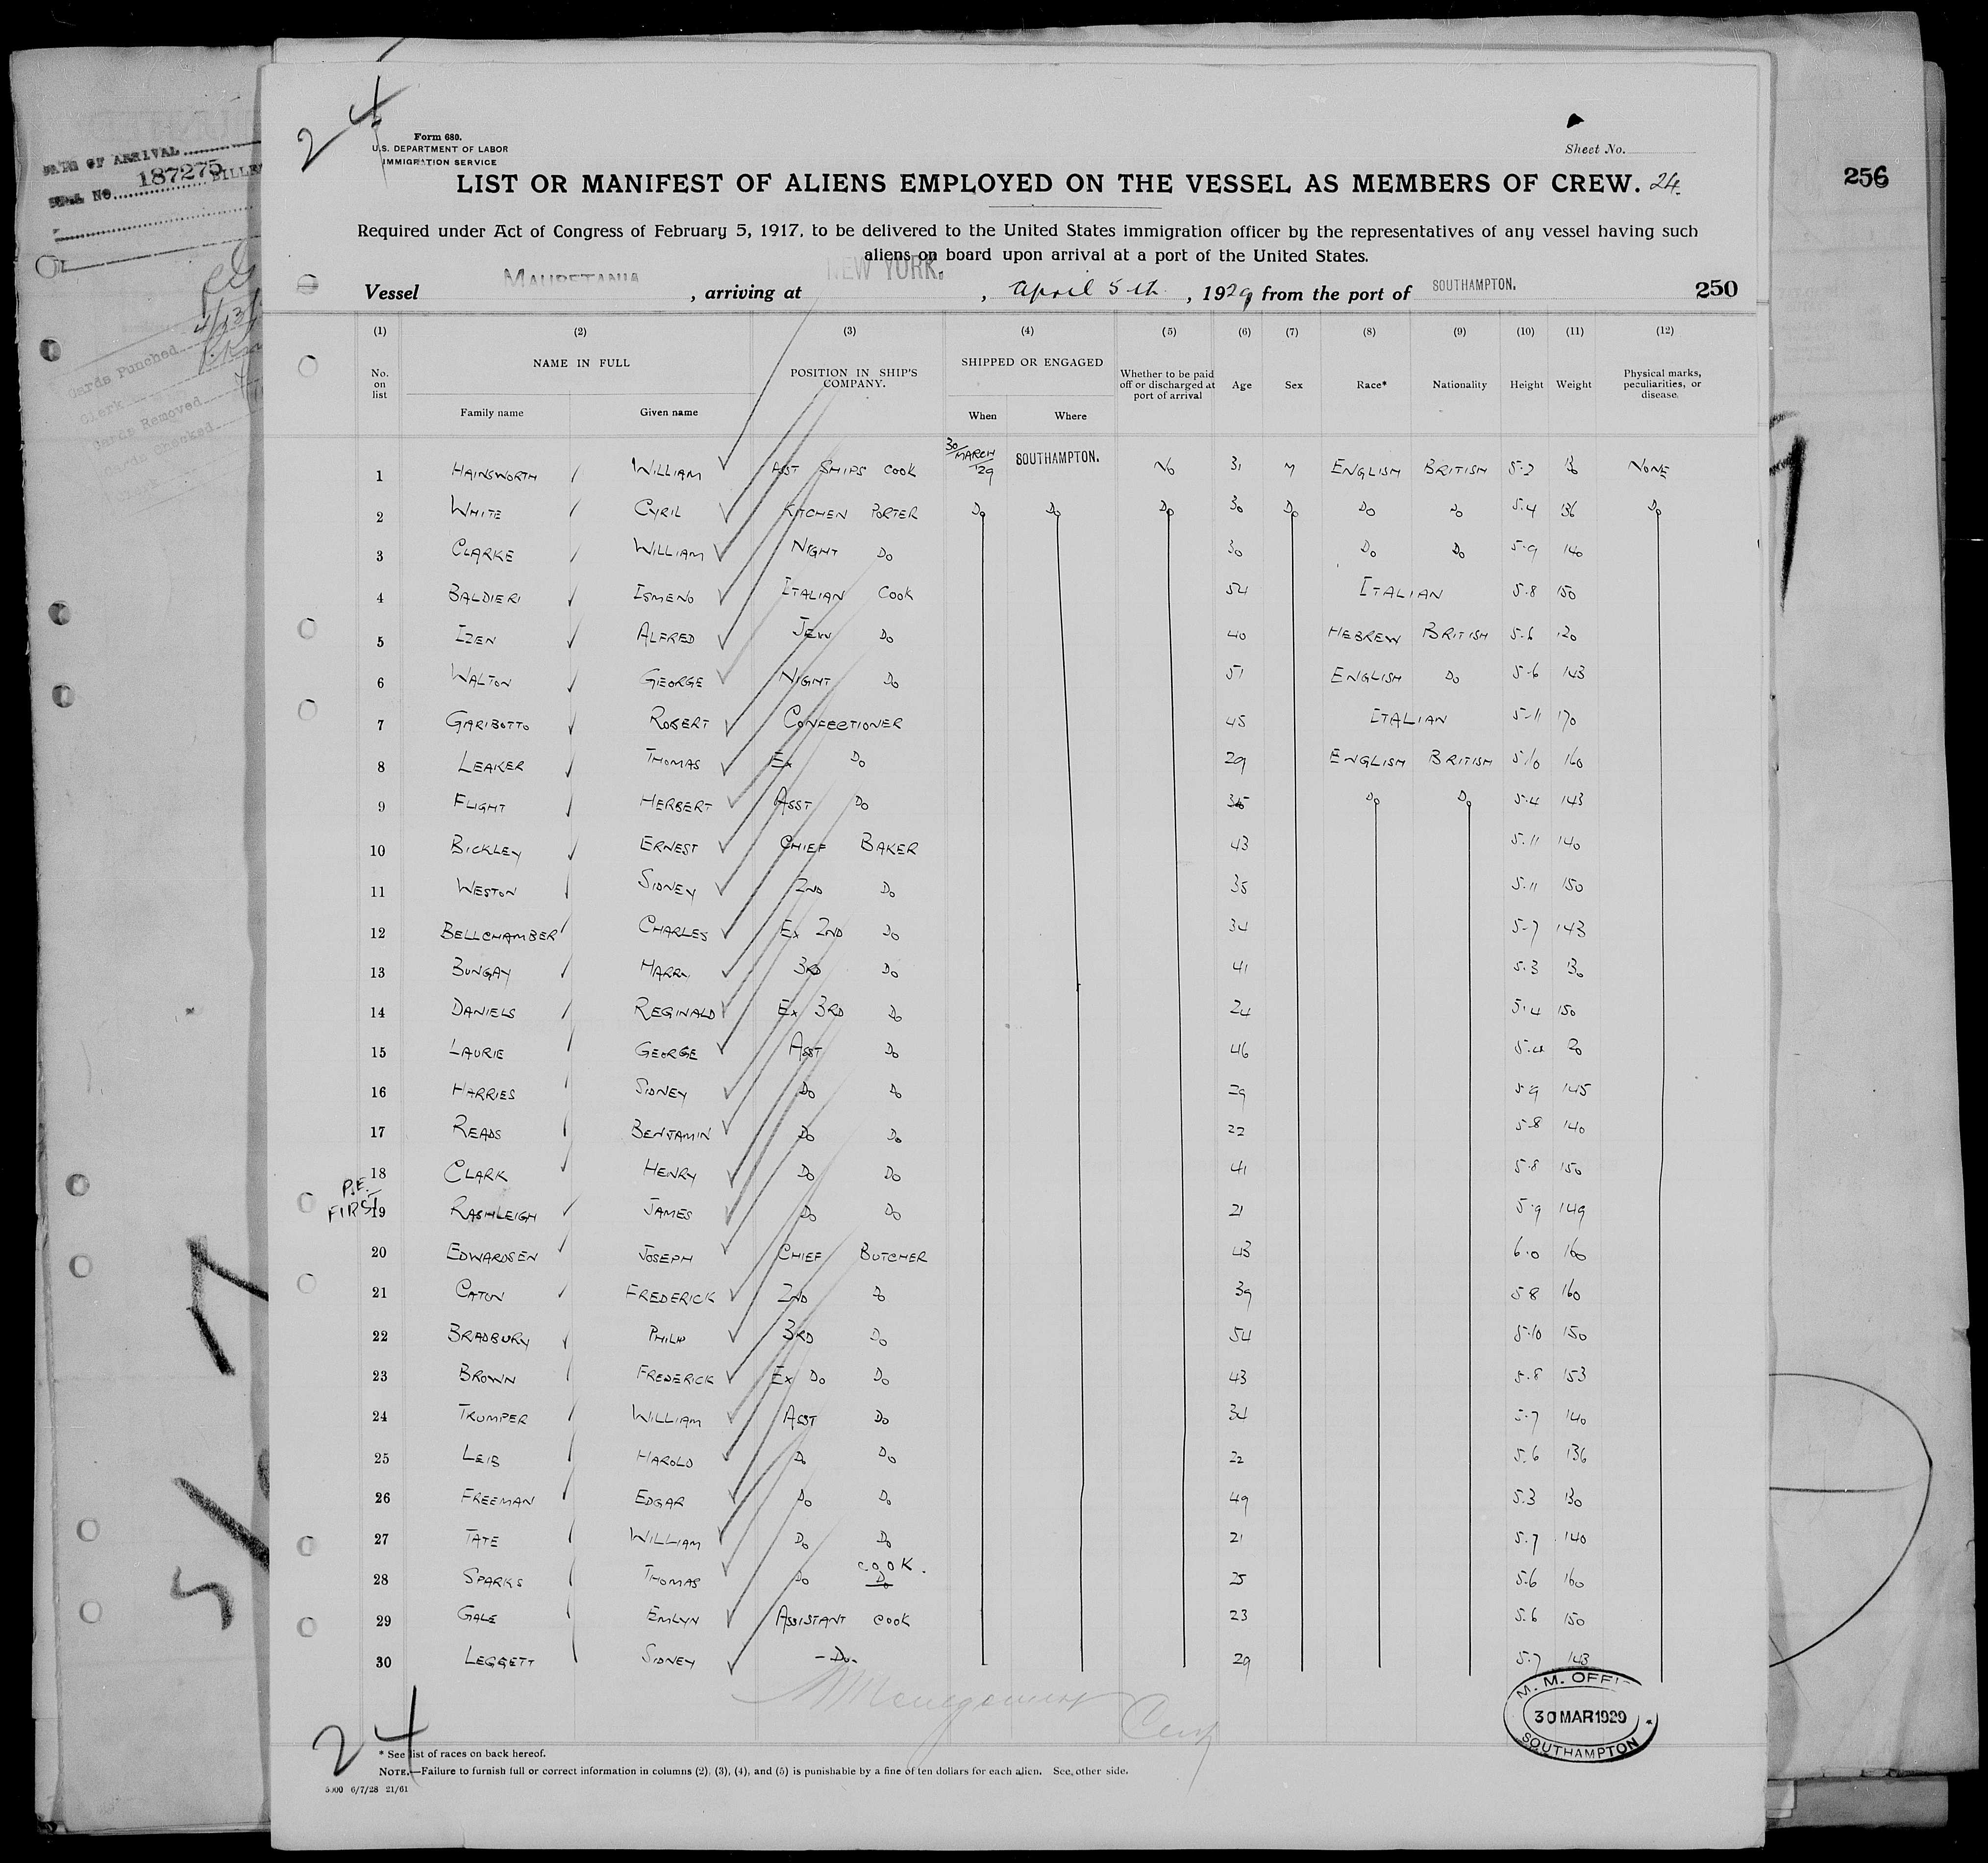 24
Form 680.
U.S. DEPARTMENT OF LABOR
IMMIGRATION SERVICE
Sheet No.
LIST OR MANIFEST OF ALIENS EMPLOYED ON THE VESSEL AS MEMBERS OF CREW. 24.
Required under Act of Congress of February 5, 1917, to be delivered to the United States immigration officer by the representatives of any vessel having such
aliens on board upon arrival at a port of the United States.
Vessel MAURETANIA, arriving at NEW YORK., April 5th, 1929 from the port of SOUTHAMPTON. 250
256
DATE OF ARRIVAL
187275
Cards Punched
Clerk
Cards Removed
(1) (2) (3) (4) (5) (6) (7) (8) (9) (10) (11) (12)
No. on list NAME IN FULL POSITION IN SHIP'S COMPANY. SHIPPED OR ENGAGED Whether to be paid off or discharged at port of arrival Age Sex Race* Nationality Height Weight Physical marks, peculiarities, or disease.
Family name Given name When Where
1 HAINSWORTH WILLIAM ASST SHIPS COOK 30/MARCH/29 SOUTHAMPTON. NO 31 M ENGLISH BRITISH 5-7 NONE
2 WHITE CYRIL KITCHEN PORTER Do Do Do 30 Do Do Do 5.4 136 Do
3 CLARKE WILLIAM NIGHT Do 30 Do Do 5-9 140
4 BALDIERI ISMENO ITALIAN COOK 54 ITALIAN 5-8 150
5 IZEN ALFRED JEW Do 40 HEBREW BRITISH 5-6 120
6 WALTON GEORGE NIGHT Do 51 ENGLISH Do 5-6 143
7 GARIBOTTO ROBERT CONFECTIONER 45 ITALIAN 5-11 170
8 LEAKER THOMAS EX Do 29 ENGLISH BRITISH 5.10 160
9 FLIGHT HERBERT ASST Do Do Do 5.4 143
10 BICKLEY ERNEST CHIEF BAKER 43 5.11 140
11 WESTON SIDNEY 2ND Do 35 5.11 150
12 BELLCHAMBER CHARLES EX 2ND Do 34 5-7 143
13 BUNGAY HARRY 3RD Do 41 5.3 130
14 DANIELS REGINALD EX 3RD Do 24 5.4 150
15 LAURIE GEORGE ASST Do 46 5.4
16 HARRIES SIDNEY Do Do 29 5.9 145
17 READS BENJAMIN Do Do 22 5-8 140
18 CLARK HENRY Do Do 41 5.8 150
P.E. FIRST
19 RASHLEIGH JAMES Do Do 21 5.9 149
20 EDWARDSEN JOSEPH CHIEF BUTCHER 43 6.0 160
21 CATON FREDERICK 2ND Do 39 5.8 160
22 BRADBURY PHILIP 3RD Do 54 5.10 150
23 BROWN FREDERICK EX Do Do 43 5.8 153
24 TRUMPER WILLIAM ASST Do 34 5.7 140
25 LEIB HAROLD Do Do 22 5.6 136
26 FREEMAN EDGAR Do Do 49 5.3 130
27 TATE WILLIAM Do Do 21 5.7 140
28 SPARKS THOMAS Do COOK. Do 25 5.6 160
29 GALE EMLYN ASSISTANT COOK 23 5.6 150
30 LEGGETT SIDNEY -Do- 29 5.7 143
M. M. OFFI
30 MAR 1929
SOUTHAMPTON
24
* See list of races on back hereof.
NOTE.—Failure to furnish full or correct information in columns (2), (3), (4), and (5) is punishable by a fine of ten dollars for each alien. See, other side.
5000 6/7/28 21/61